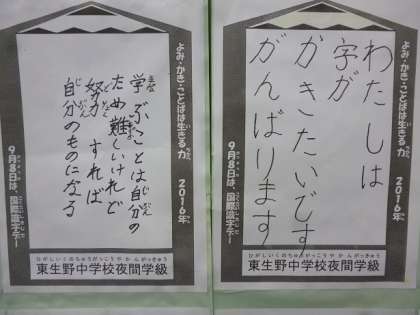 よみ・かき・ことばは生きる力 2016年
9月8日は、国際識字デー
学ぶことは自分の
ため難しいけれど
努力すれば
自分のものになる
ひがしいくのちゅうがっこうやかんがっきゅう
東生野中学校夜間学級
よみ・かき・ことばは生きる力 2016年
9月8日は、国際識字デー
わたしは
字が
かきたいです
がんばります
ひがしいくのちゅうがっこうやかんがっきゅう
東生野中学校夜間学級